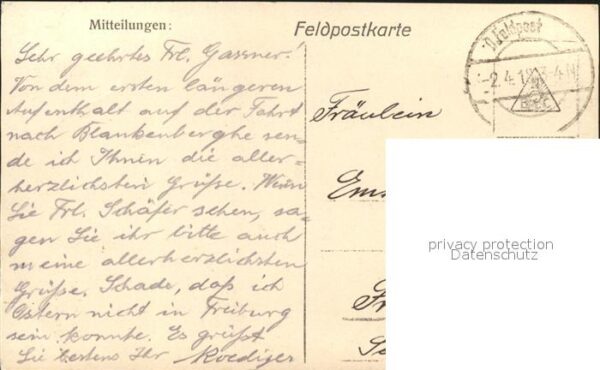 Mitteilungen:
Feldpostkarte
Sehr geehrtes Frl. Gassner!
Von dem ersten längeren
Aufenthalt auf der Fahrt
nach Blankenberghe sen-
de ich Ihnen die aller-
herzlichsten Grüße. Wenn
Sie Frl. Schäfer sehen, sa-
gen Sie ihr bitte auch
meine allerherzlichsten
Grüße. Schade, daß ich
Ostern nicht in Freiburg
sein konnte. Es grüßt
Sie bestens Ihr Roediger
Feldpost
-2.4.18
Fräulein
privacy protection
Datenschutz